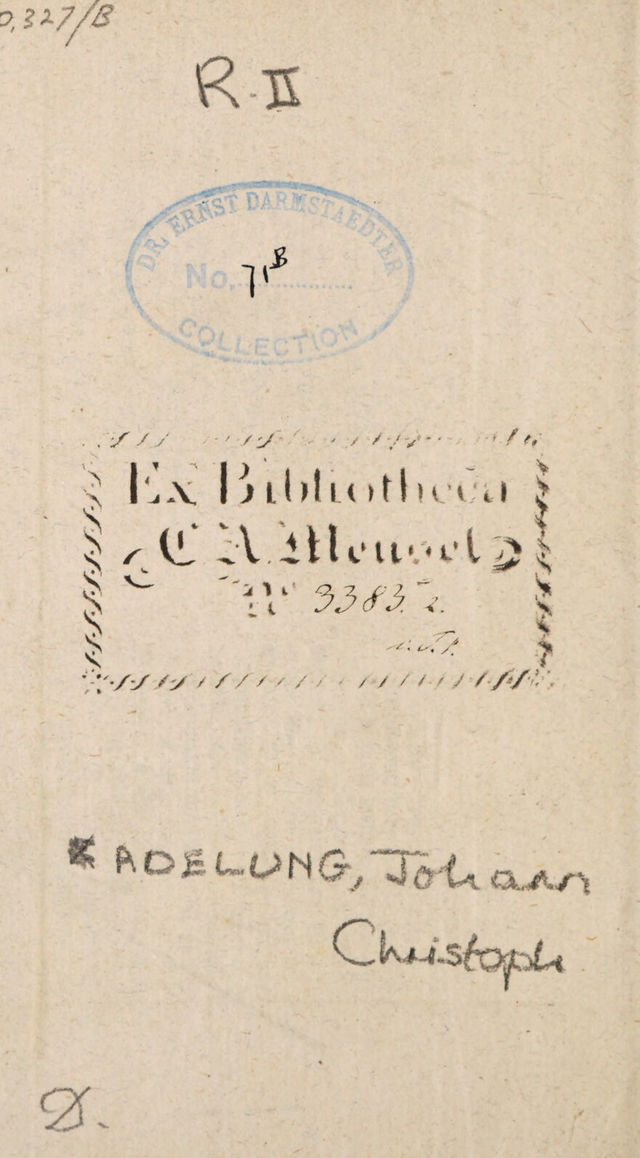 0,327/B
R. II
DR. ERNST DARMSTAEDTER
No. 71B
COLLECTION
Ex Bibliotheca
C A Meusel
No 3383. 2.
ADELUNG, Johann
Christoph
D.